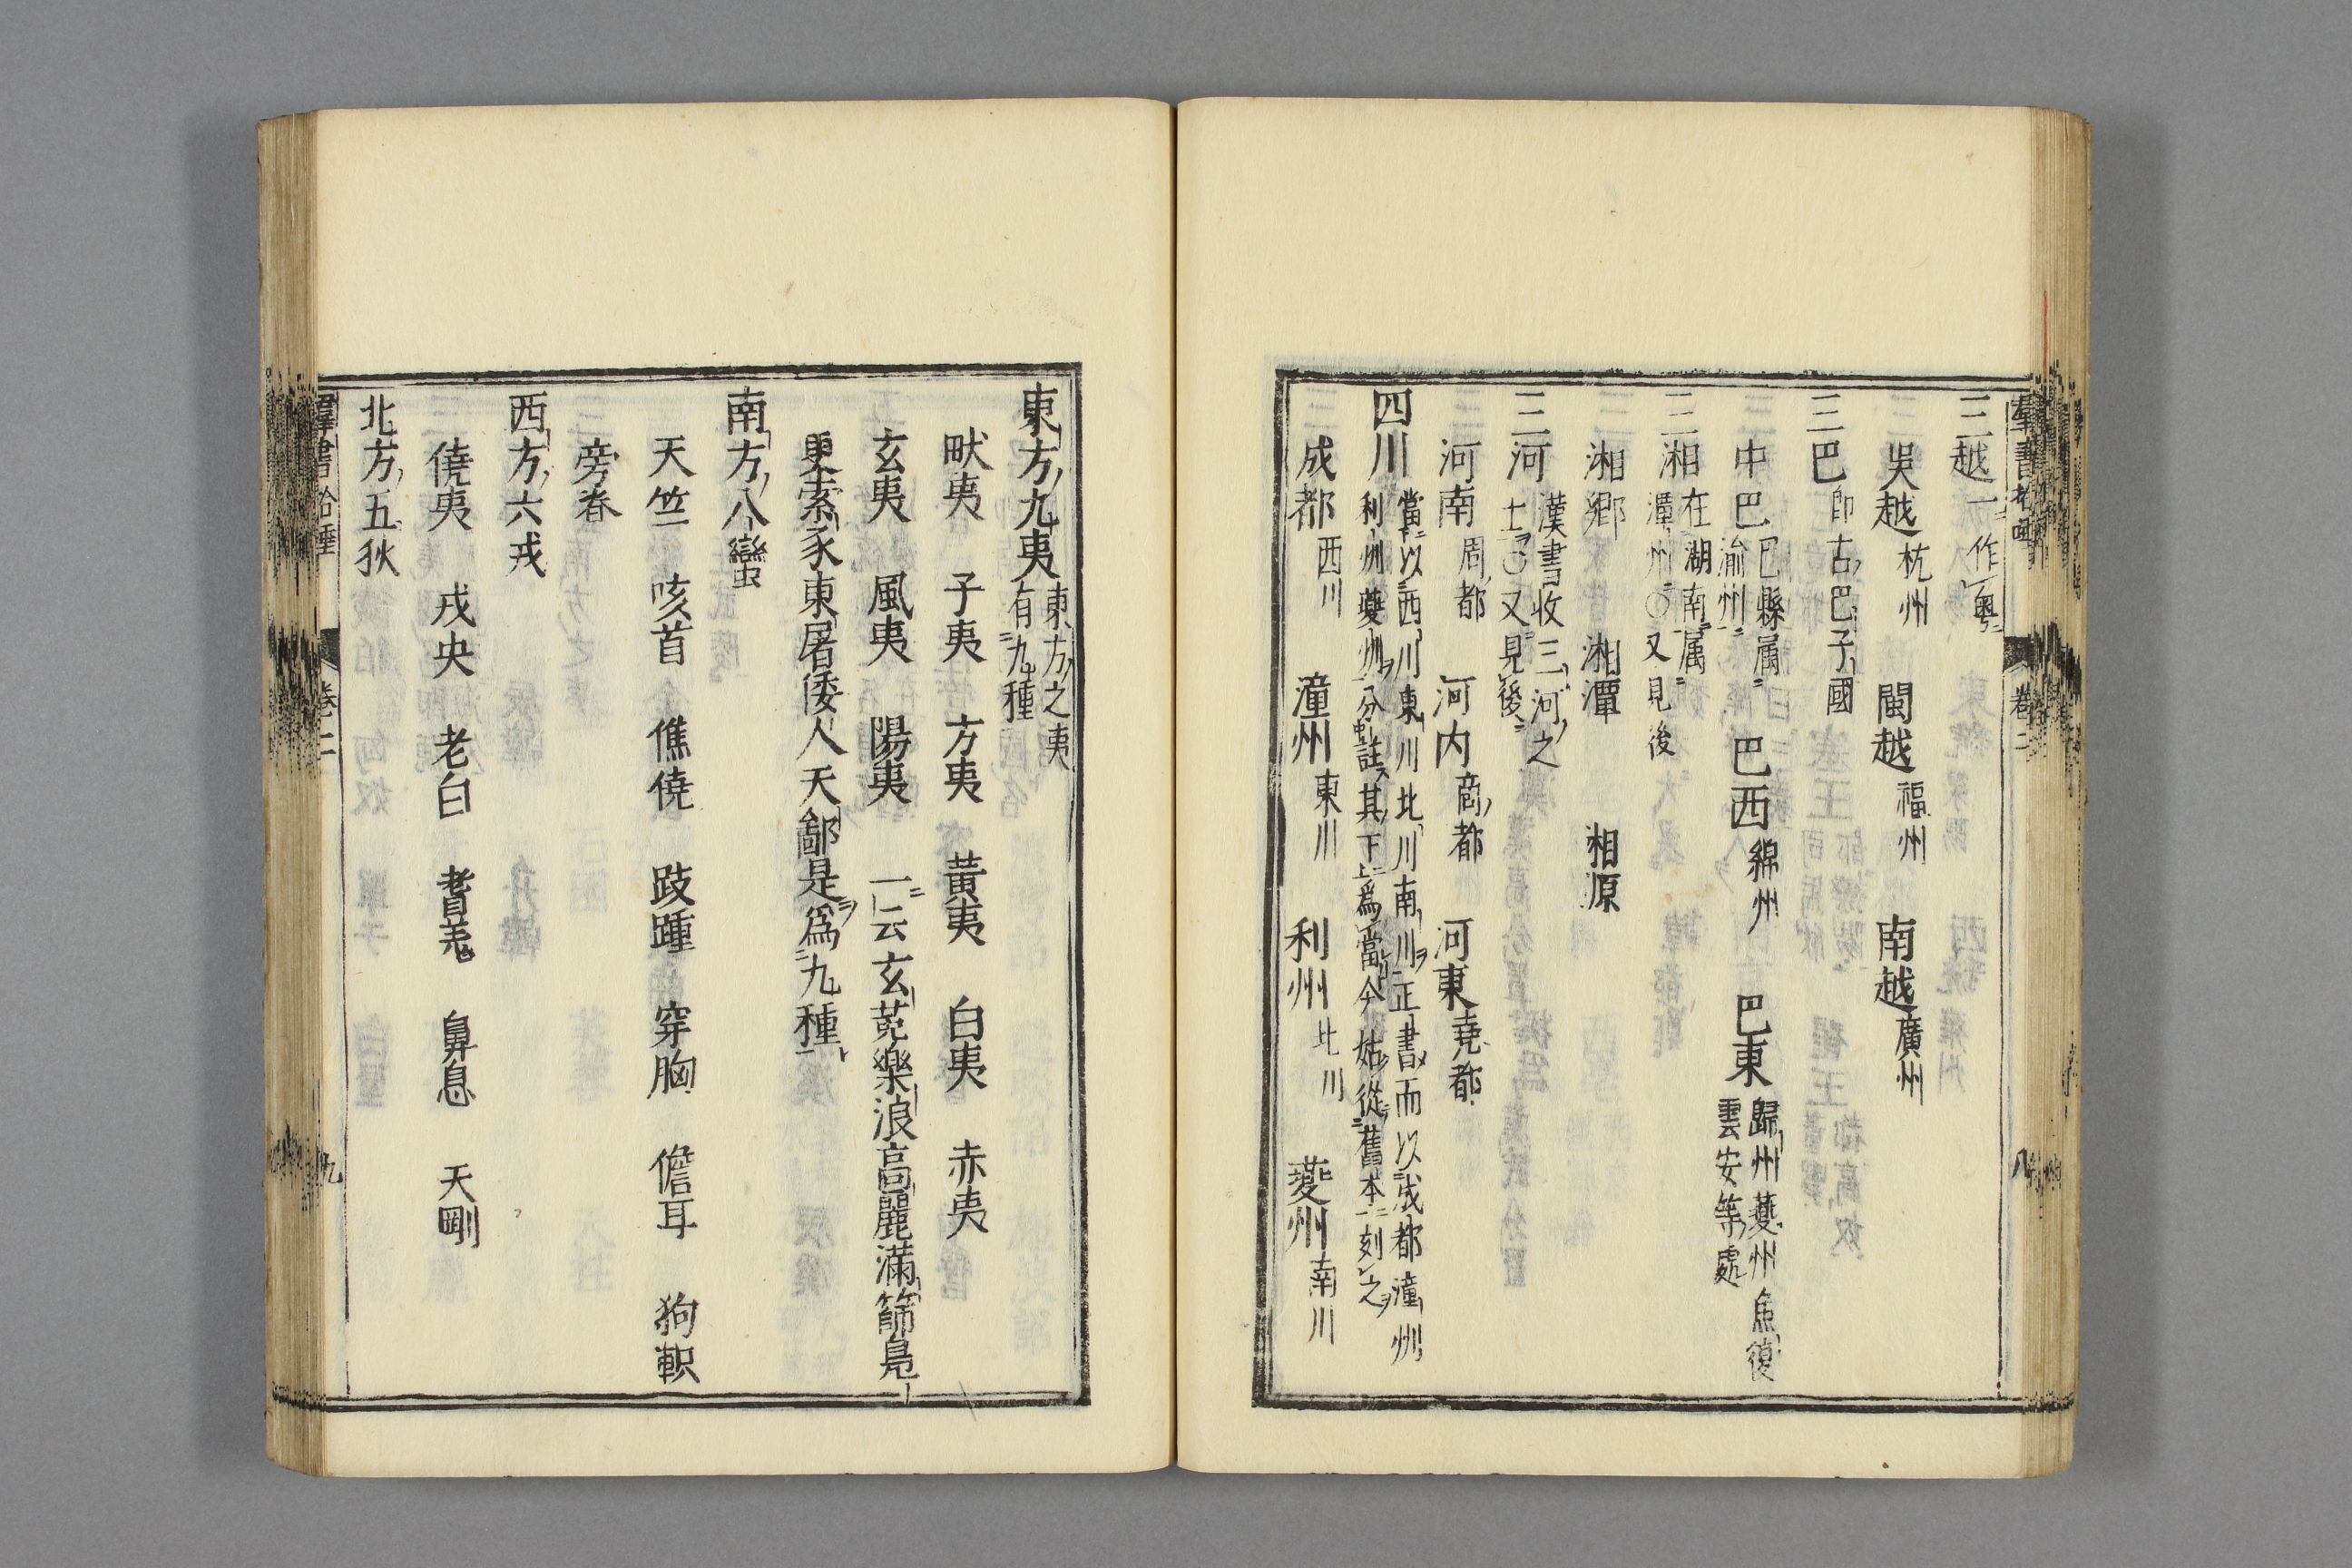 三越 一作粤
吳越 杭州 閩越 福州 南越 廣州
三巴 即古巴子國
中巴 巴縣属渝州 巴西 綿州 巴東 歸州夔州魚復雲安等處
三湘 在湖南属潭州○又見後
湘鄉 湘潭 相原
三河 漢書收三河之士○又見後
河南 周都 河内 商都 河東 堯都
四川 當以西川東川北川南川正書而以成都潼州利州夔州分註其下為當今姑從舊本刻之
成都 西川 潼州 東川 利州 北川 夔州 南川
東方九夷 東方之夷有九種
畎夷 子夷 方夷 黃夷 白夷 赤夷
玄夷 風夷 陽夷 一云玄菟樂浪高麗滿篩鳧
更索家東屠倭人天鄙是爲九種
南方八蠻
天竺 咳首 僬僥 跂踵 穿胸 儋耳 狗軹
旁舂
西方六戎
僥夷 戎央 老白 耆羌 鼻息 天剛
北方五狄
卷二 九